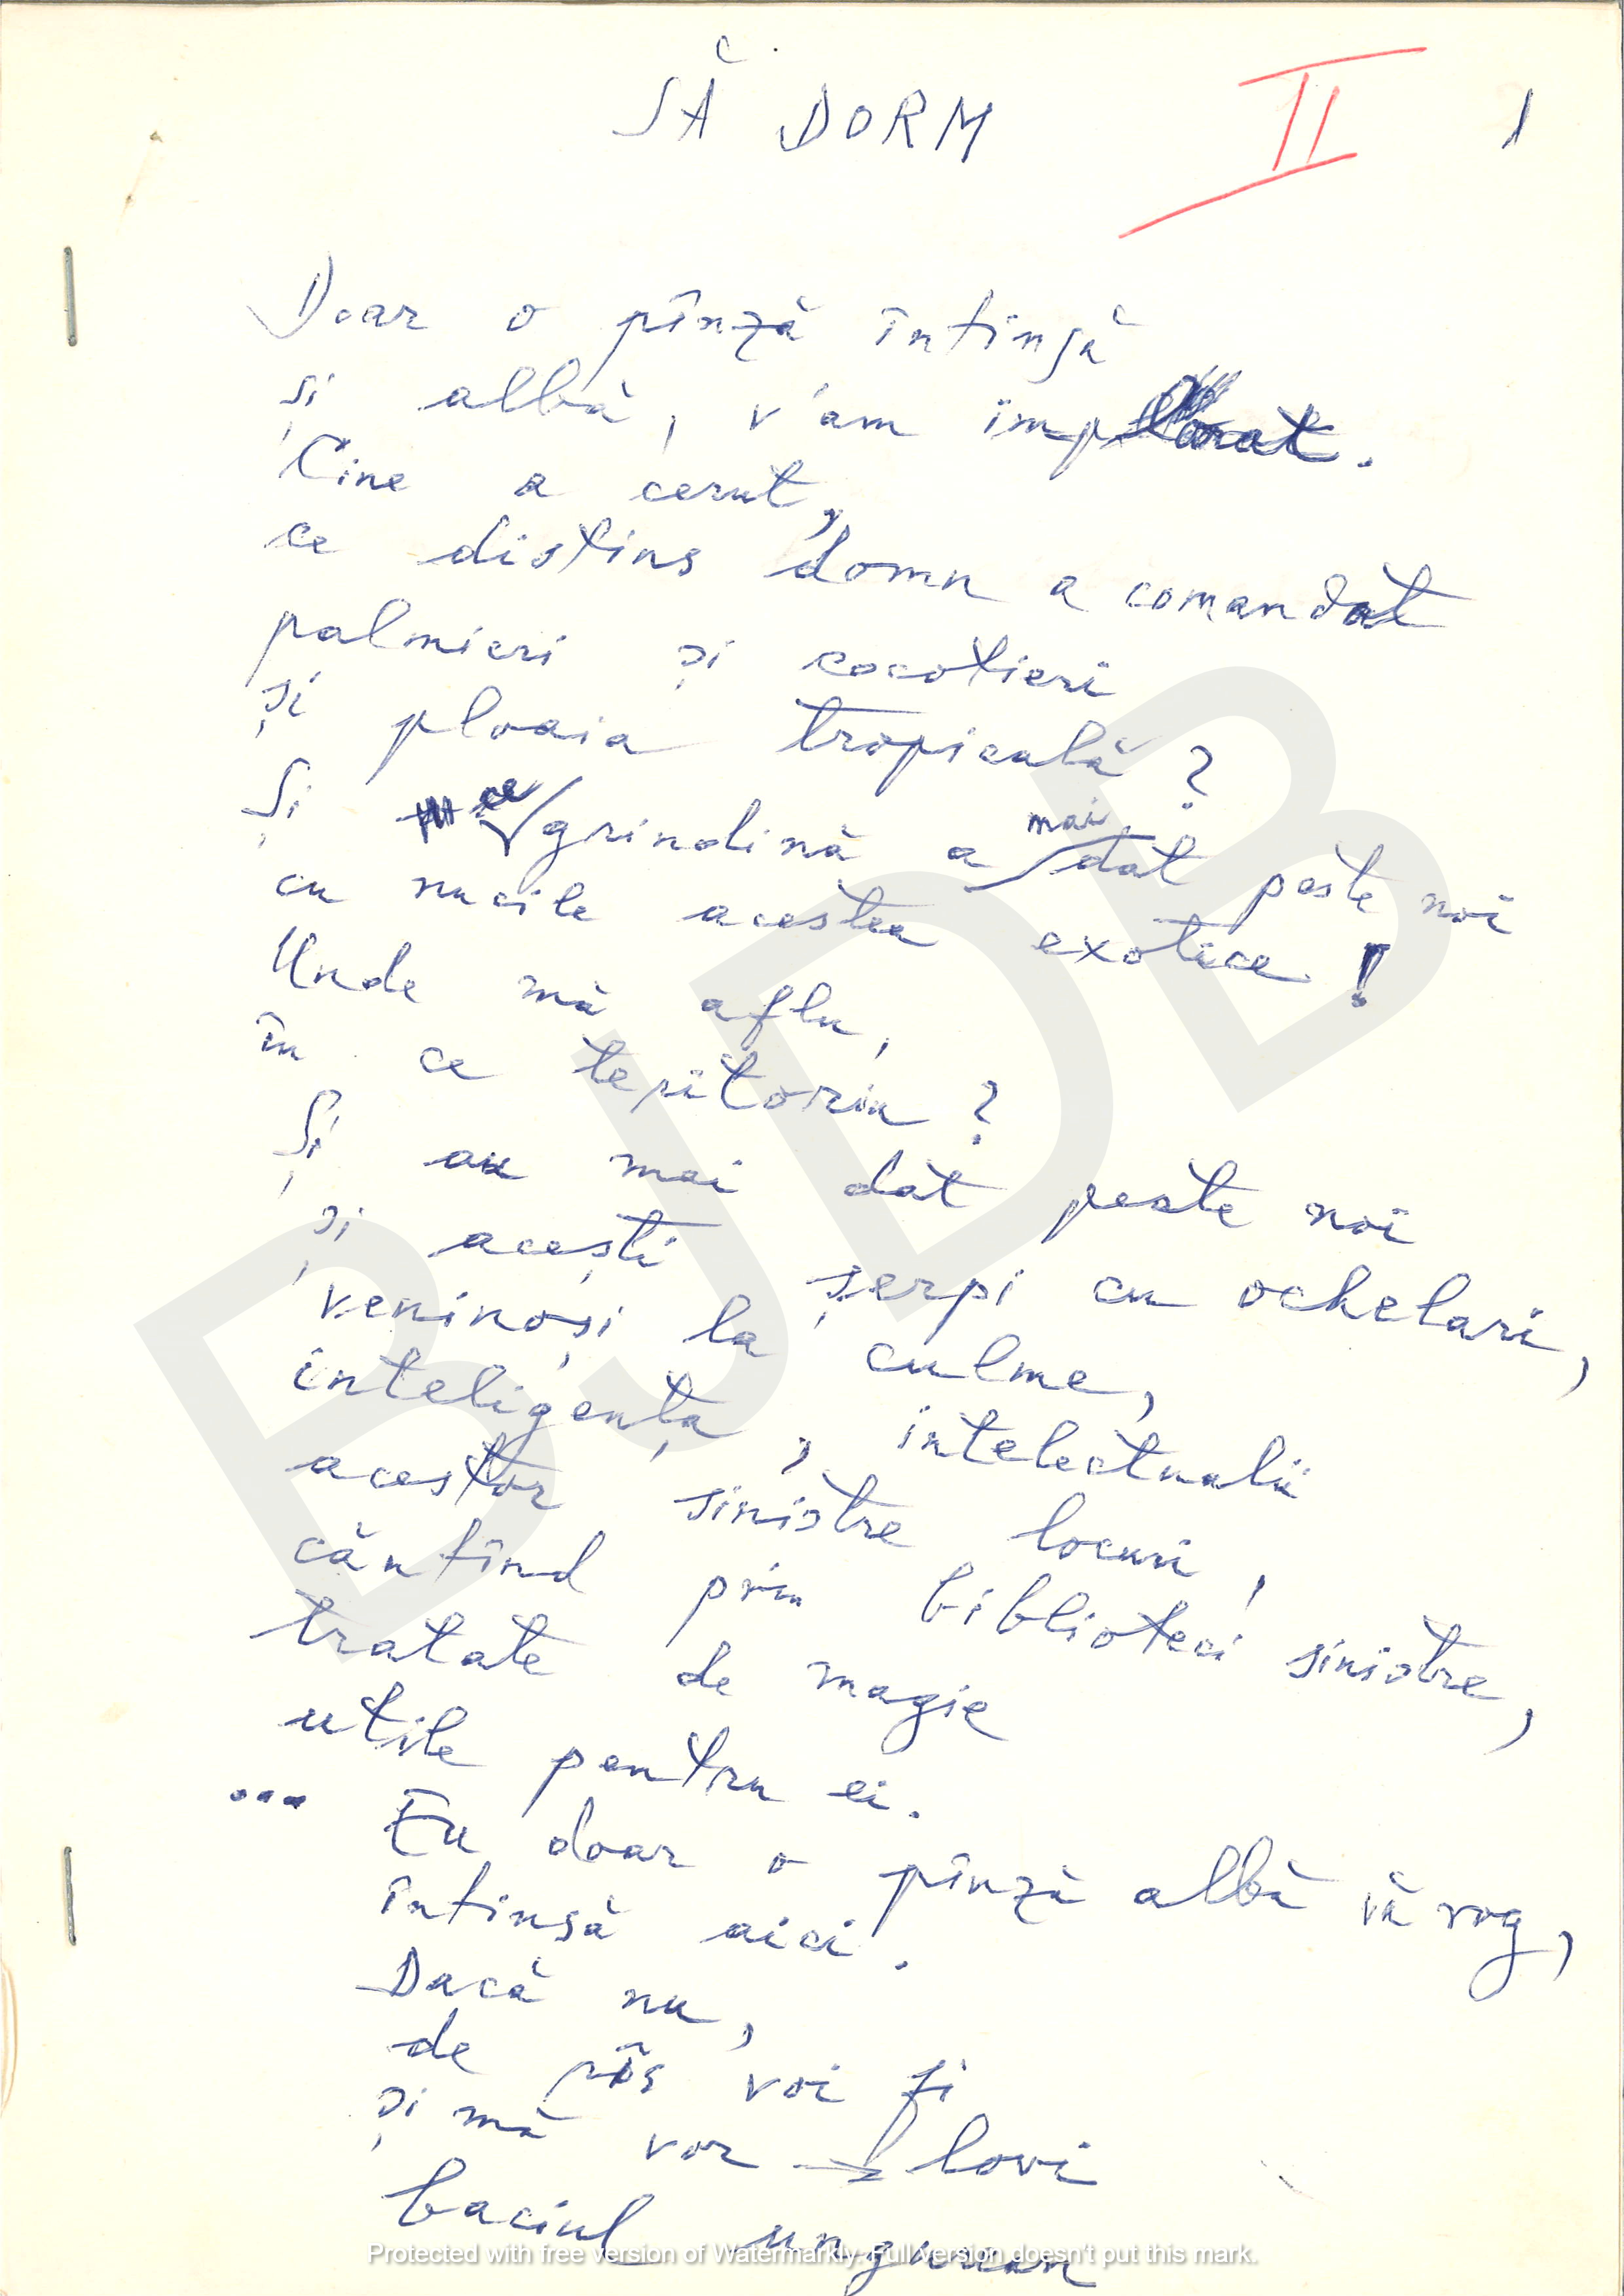 SĂ DORM
II
1
Doar o pînză întinsă
și albă, v'am implorat.
Cine a cerut,
ce distins domn a comandat
palmieri și cocotieri
și ploaia tropicală?
Și ce grindină a mai dat peste noi
cu nucile acestea exotice!
Unde mă aflu,
în ce teritoriu?
Și au mai dat peste noi
și acești șerpi cu ochelari,
veninoși la culme,
inteligența, intelectualii
acestor sinistre locuri,
căutînd prin biblioteci sinistre,
tratate de magie
utile pentru ei.
... Eu doar o pînză albă vă rog,
întinsă aici.
Dacă nu,
de rîs voi fi
și mă vor lovi
baciul ungurean
BJDB
Protected with free version of Watermarkly. Full version doesn't put this mark.